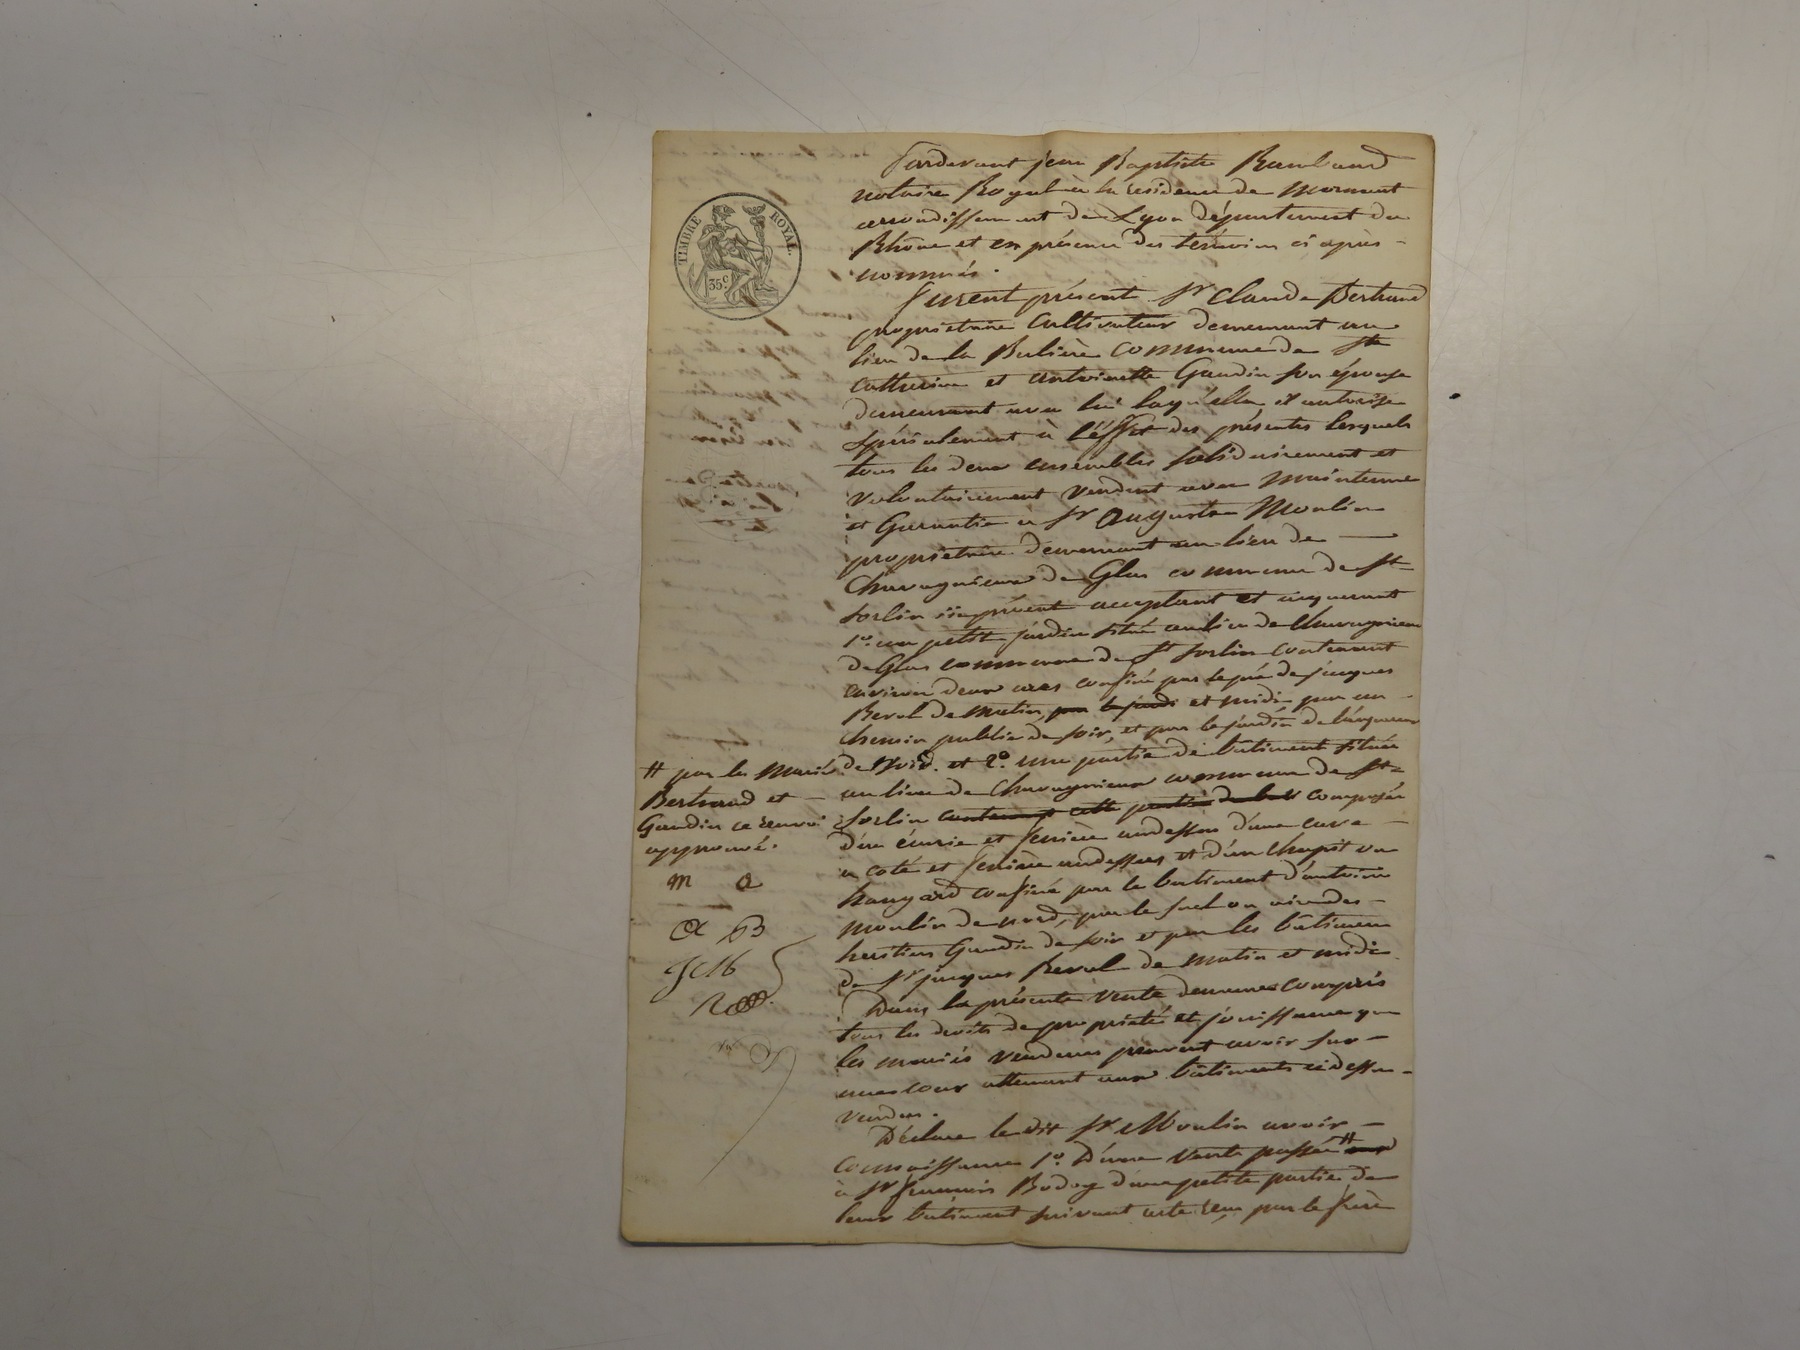 Pardevant Jean Baptiste
notaire Royal à la résidence de Mornant
arrondissement de Lyon département du
Rhône et en présence des témoins ci après
nommés.
TIMBRE ROYAL
35 c.
Furent présent Sr Claude Bertrand
propriétaire cultivateur demeurant au
lieu de la commune de Ste
Catherine et antoinette Gaudin son épouse
demeurant avec lui laquelle il autorise
spécialement à l'éffet des présentes lesquels
tous les deux ensembles solidairement et
volontairement vendent avec maintenue
et Garantie à Sr Auguste Moulin
propriétaire demeurant au lieu de
de Glas commune de St
Sorlin ici présent acceptant et acquerant
1o. un petit jardin situé au lieu de
de Glas commune de St Sorlin contenant
environ deux ares confiné par le pré de Jacques
de matin et midi par un
chemin public de soir, et par le jardin de l'acquereur
de Nord. et 2o. une partie de bâtiment située
au lieu de commune de St
Sorlin composée
d'un écurie et fenière audessus d'une cave
à coté et feniere audessus et d'un Chapit ou
hangard confiné par le batiment d'antoine
moulin de nord, par le suel ou aire des
heritiers Gaudin de soir et par les bâtimens
de Sr jacques de matin et midi.
Dans la présente vente demeure compris
tous les droits de propriété et jouissance que
les mariés vendeurs peuvent avoir sur
une cour attenant aux bâtiments cidessus
vendus.
Déclare le dit Sr Moulin avoir
connaissance 1o. D'une vente passée #
à Sr d'une petite partie de
leur bâtiment suivant acte reçu par le
# par les mariés
Bertrand et
Gaudin ce renvoi
approuvé.
m a